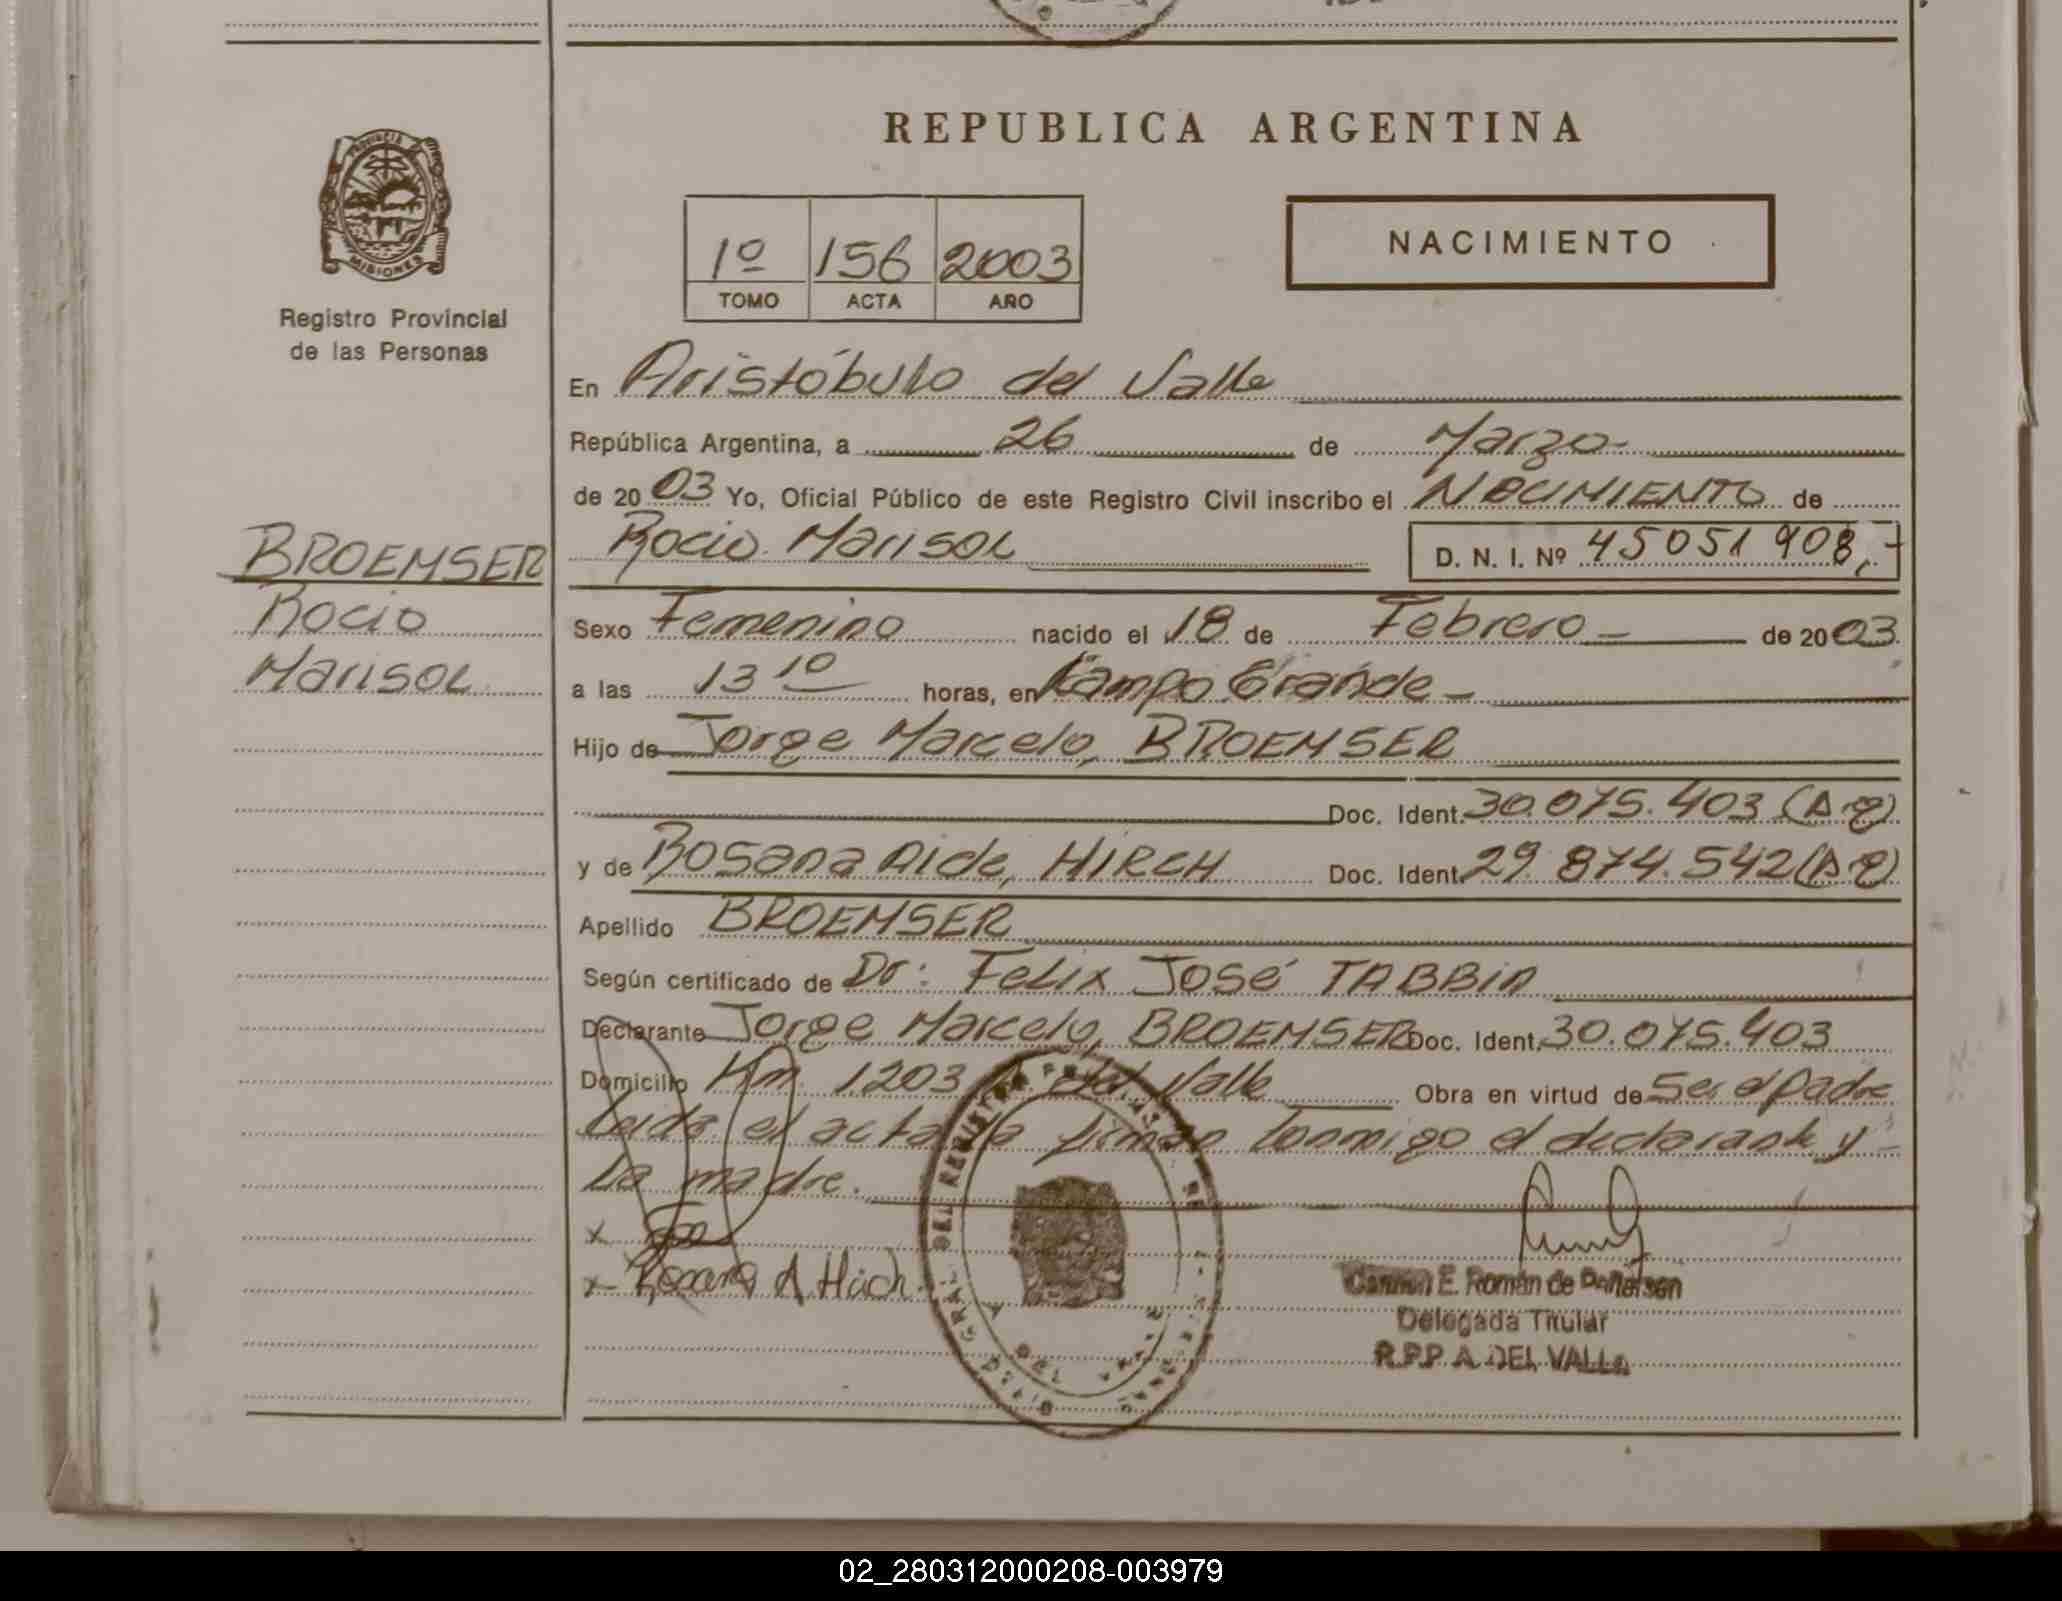 REPUBLICA ARGENTINA
PROVINCIA
MISIONES
Registro Provincial
de las Personas
1º 156 2003
TOMO ACTA AÑO
NACIMIENTO
BROEMSER
Rocio
Marisol
En Aristóbulo del Valle
República Argentina, a 26 de Marzo
de 20 03 Yo, Oficial Público de este Registro Civil inscribo el NACIMIENTO de
Rocio Marisol D. N. I. Nº 45051 908,-
Sexo Femenino nacido el 18 de Febrero de 20 03
a las 13 10 horas, en Campo Grande
Hijo de Jorge Marcelo, BROEMSER
Doc. Ident. 30.075.403 (Arg)
y de Rosana Aide, HIRCH Doc. Ident. 29.874.542 (Arg)
Apellido BROEMSER
Según certificado de Dr: Felix José TABBIA
Declarante Jorge Marcelo, BROEMSER Doc. Ident. 30.075.403
Domicilio Km. 1.203 A. del Valle Obra en virtud de Ser el padre
Leida el acta la firman conmigo el declarante y
La madre.
x
x Rosana A Hirch
E. Román de
Delegada Titular
R.P.P. A. DEL VALLE
02_280312000208-003979